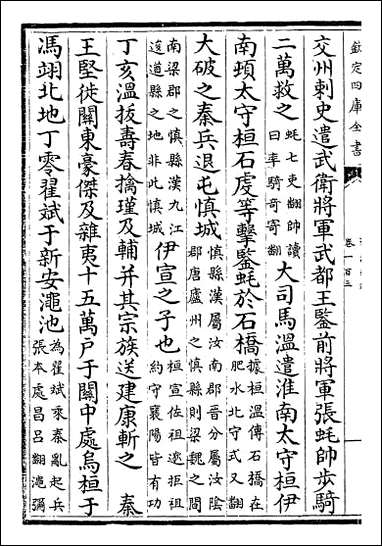 欽定四庫全書
卷一百三
交州刺史遣武衛將軍武都王鑒前將軍張蚝帥步騎
二萬救之蚝七吏翻帥讀曰率騎奇寄翻大司馬溫遣淮南太守桓伊
南頓太守桓石虔等擊鑒蚝於石橋據桓溫傳石橋在肥水北守式又翻
大破之秦兵退屯慎城慎縣漢屬汝南郡晉分屬汝陰郡唐廬州之慎縣則梁魏之間
南梁郡之慎縣漢九江逡道縣之地非此慎城伊宣之子也桓宣佐祖逖拒祖約守襄陽皆有功
丁亥溫拔壽春擒瑾及輔并其宗族送建康斬之 秦
王堅徙關東豪傑及雜夷十五萬戶于關中處烏桓于
馮翊北地丁零翟斌于新安澠池為翟斌乘秦亂起兵張本處昌呂翻澠彌